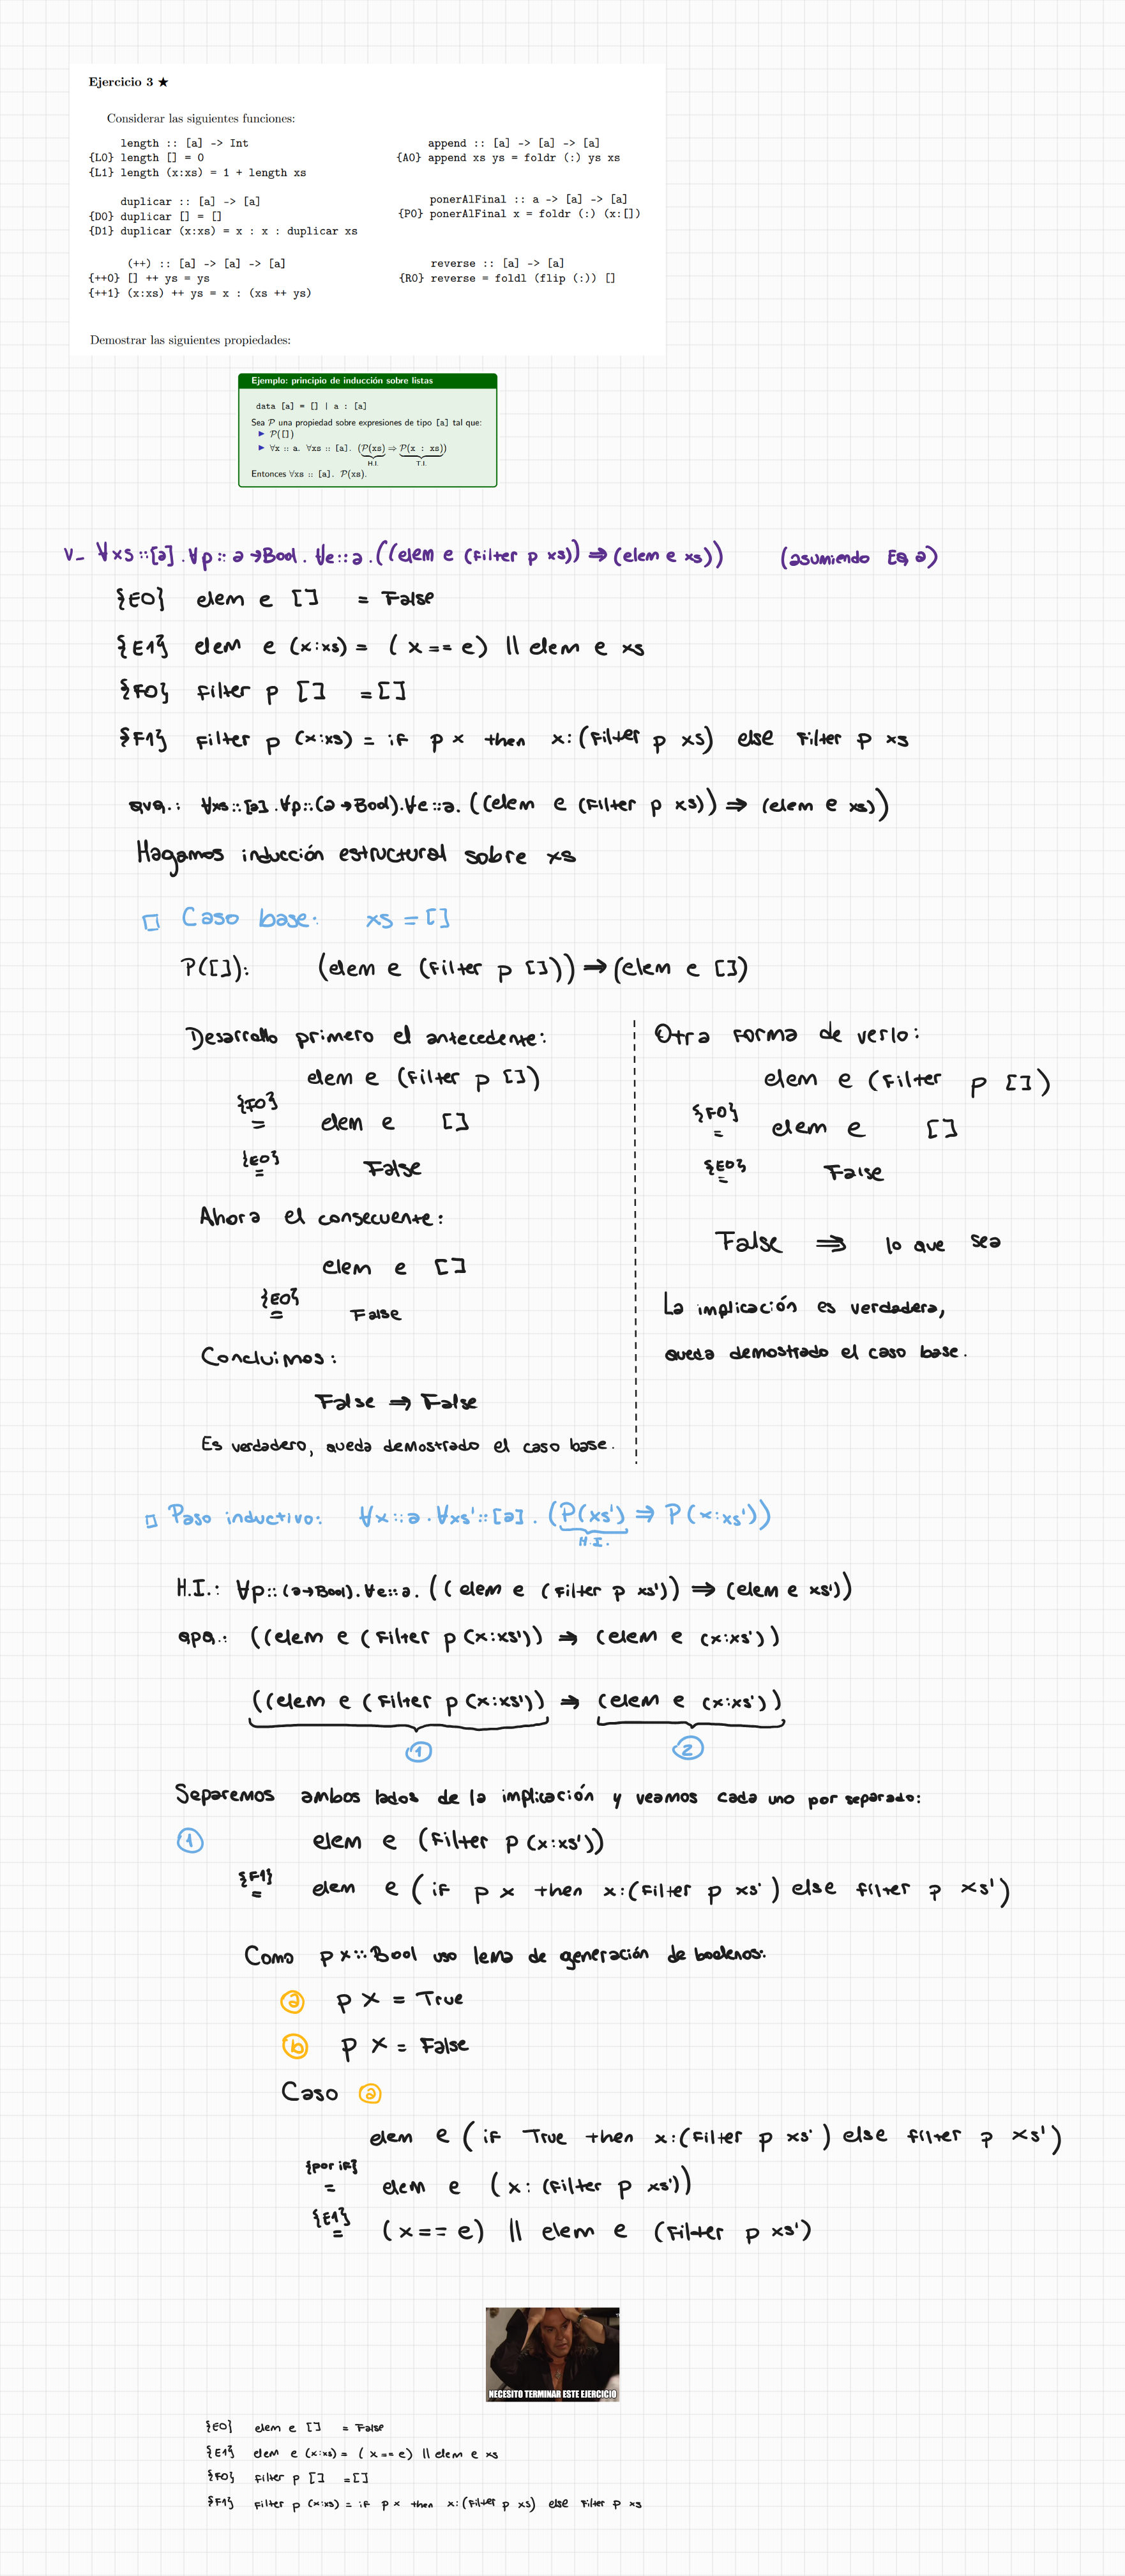 Ejercicio 3 ★
Considerar las siguientes funciones:
length :: [a] -> Int
{L0} length [] = 0
{L1} length (x:xs) = 1 + length xs
append :: [a] -> [a] -> [a]
{A0} append xs ys = foldr (:) ys xs
duplicar :: [a] -> [a]
{D0} duplicar [] = []
{D1} duplicar (x:xs) = x : x : duplicar xs
ponerAlFinal :: a -> [a] -> [a]
{P0} ponerAlFinal x = foldr (:) (x:[])
(++) :: [a] -> [a] -> [a]
{++0} [] ++ ys = ys
{++1} (x:xs) ++ ys = x : (xs ++ ys)
reverse :: [a] -> [a]
{R0} reverse = foldl (flip (:)) []
Demostrar las siguientes propiedades:
Ejemplo: principio de inducción sobre listas
data [a] = [] | a : [a]
Sea P una propiedad sobre expresiones de tipo [a] tal que:
▶ P([])
▶ ∀x :: a. ∀xs :: [a]. (P(xs) ⇒ P(x : xs))
H.I. T.I.
Entonces ∀xs :: [a]. P(xs).
V- ∀xs::[a].∀p::a→Bool.∀e::a.((elem e (filter p xs)) ⇒ (elem e xs)) (asumiendo Eq a)
{E0} elem e [] = False
{E1} elem e (x:xs) = (x == e) || elem e xs
{F0} filter p [] = []
{F1} filter p (x:xs) = if p x then x:(filter p xs) else filter p xs
qvq.: ∀xs::[a].∀p::(a→Bool).∀e::a.((elem e (filter p xs)) ⇒ (elem e xs))
Hagamos inducción estructural sobre xs
□ Caso base: xs = []
P([]): (elem e (filter p [])) ⇒ (elem e [])
Desarrollo primero el antecedente:
elem e (filter p [])
{F0}
= elem e []
{E0}
= False
Ahora el consecuente:
elem e []
{E0}
= False
Concluimos:
False ⇒ False
Es verdadero, queda demostrado el caso base.
Otra forma de verlo:
elem e (filter p [])
{F0}
= elem e []
{E0}
= False
False ⇒ lo que sea
La implicación es verdadera,
queda demostrado el caso base.
□ Paso inductivo: ∀x::a.∀xs'::[a].(P(xs') ⇒ P(x:xs'))
H.I.
H.I.: ∀p::(a→Bool).∀e::a.((elem e (filter p xs')) ⇒ (elem e xs'))
qpq.: ((elem e (filter p (x:xs')) ⇒ (elem e (x:xs'))
((elem e (filter p (x:xs')) ⇒ (elem e (x:xs'))
1 2
Separemos ambos lados de la implicación y veamos cada uno por separado:
1 elem e (filter p (x:xs'))
{F1}
= elem e (if p x then x:(filter p xs') else filter p xs')
Como p x::Bool uso lema de generación de booleanos:
a p x = True
b p x = False
Caso a
elem e (if True then x:(filter p xs') else filter p xs')
{por if}
= elem e (x:(filter p xs'))
{E1}
= (x == e) || elem e (filter p xs')
NECESITO TERMINAR ESTE EJERCICIO
{E0} elem e [] = False
{E1} elem e (x:xs) = (x == e) || elem e xs
{F0} filter p [] = []
{F1} filter p (x:xs) = if p x then x:(filter p xs) else filter p xs